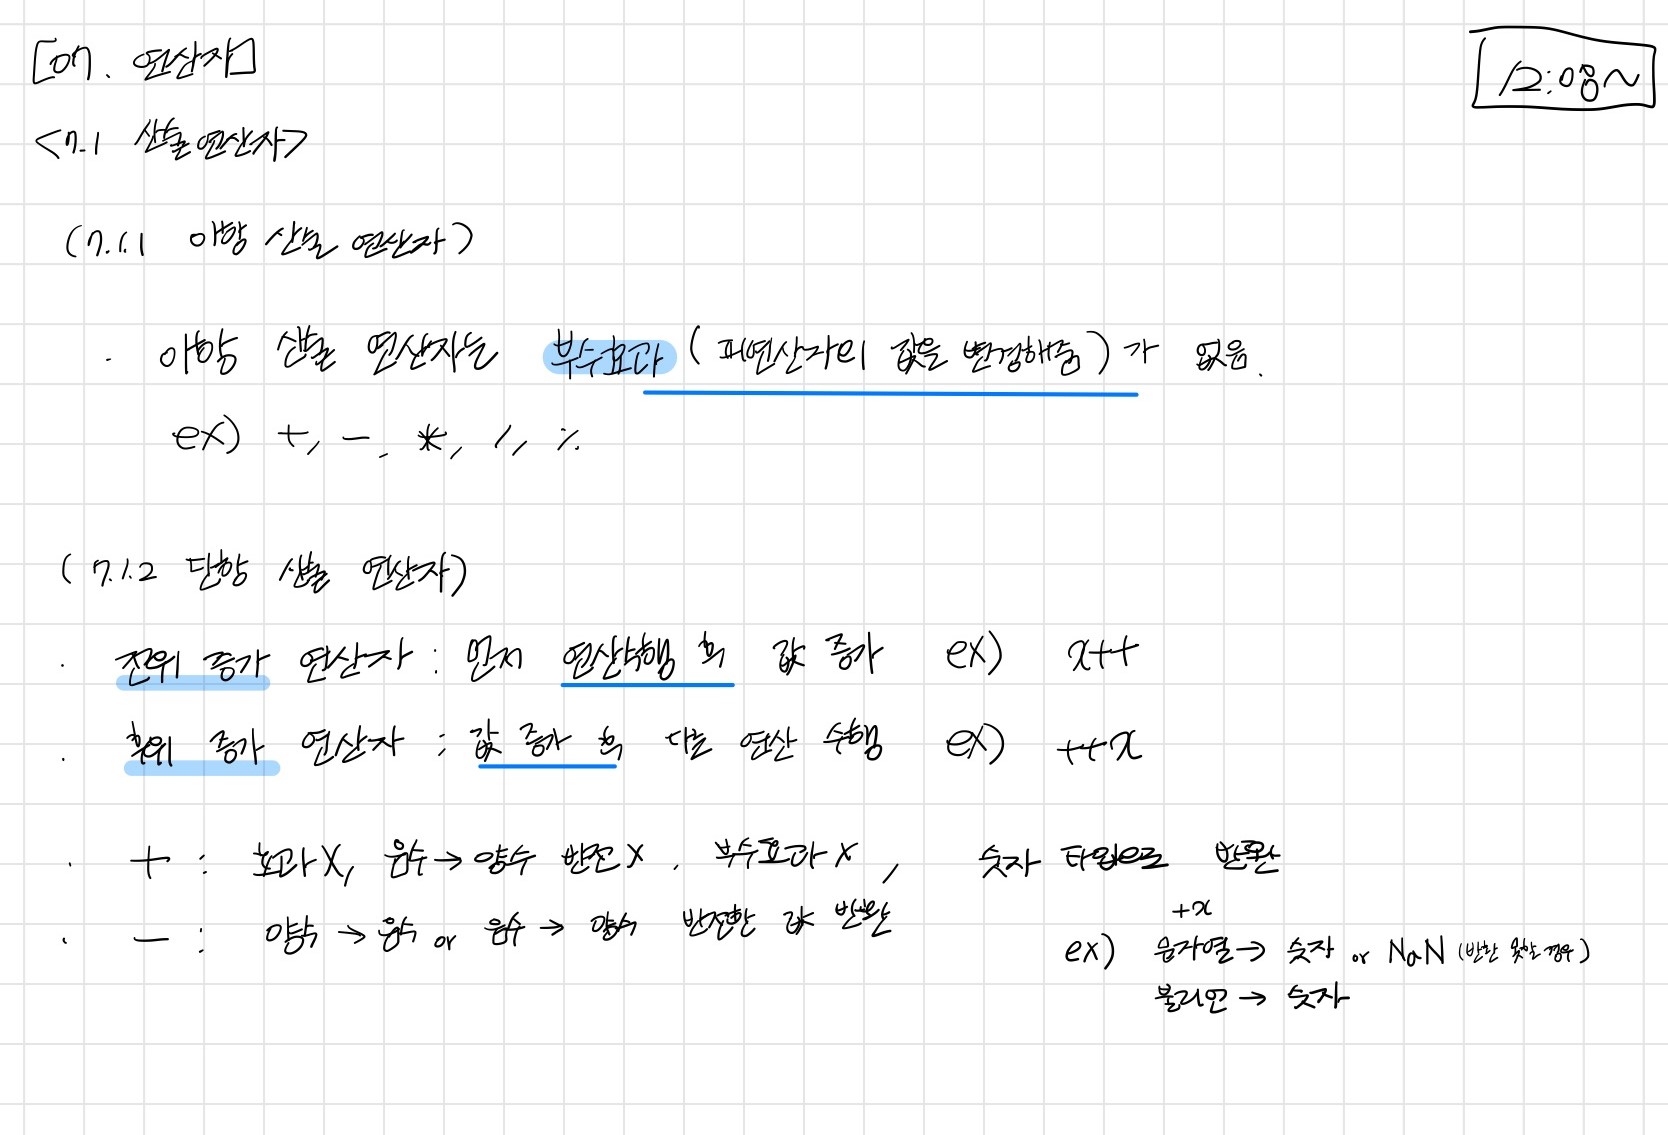 [07. 연산자]
12:08~
<7.1 산술 연산자>
(7.1.1 이항 산술 연산자)
· 이항 산술 연산자는 부수효과 (피연산자의 값을 변경해줌)가 없음.
ex) +, -, *, /, %
(7.1.2 단항 산술 연산자)
· 전위 증가 연산자 : 먼저 연산수행 후 값 증가 ex) x++
· 후위 증가 연산자 : 값 증가 후 다른 연산 수행 ex) ++x
· + : 효과X, 음수→양수 반전X, 부수효과X, 숫자 타입으로 반환
· - : 양수→음수 or 음수→양수 반전한 값 반환
+x
ex) 문자열→숫자 or NaN (반환 못할 경우)
불리언→숫자